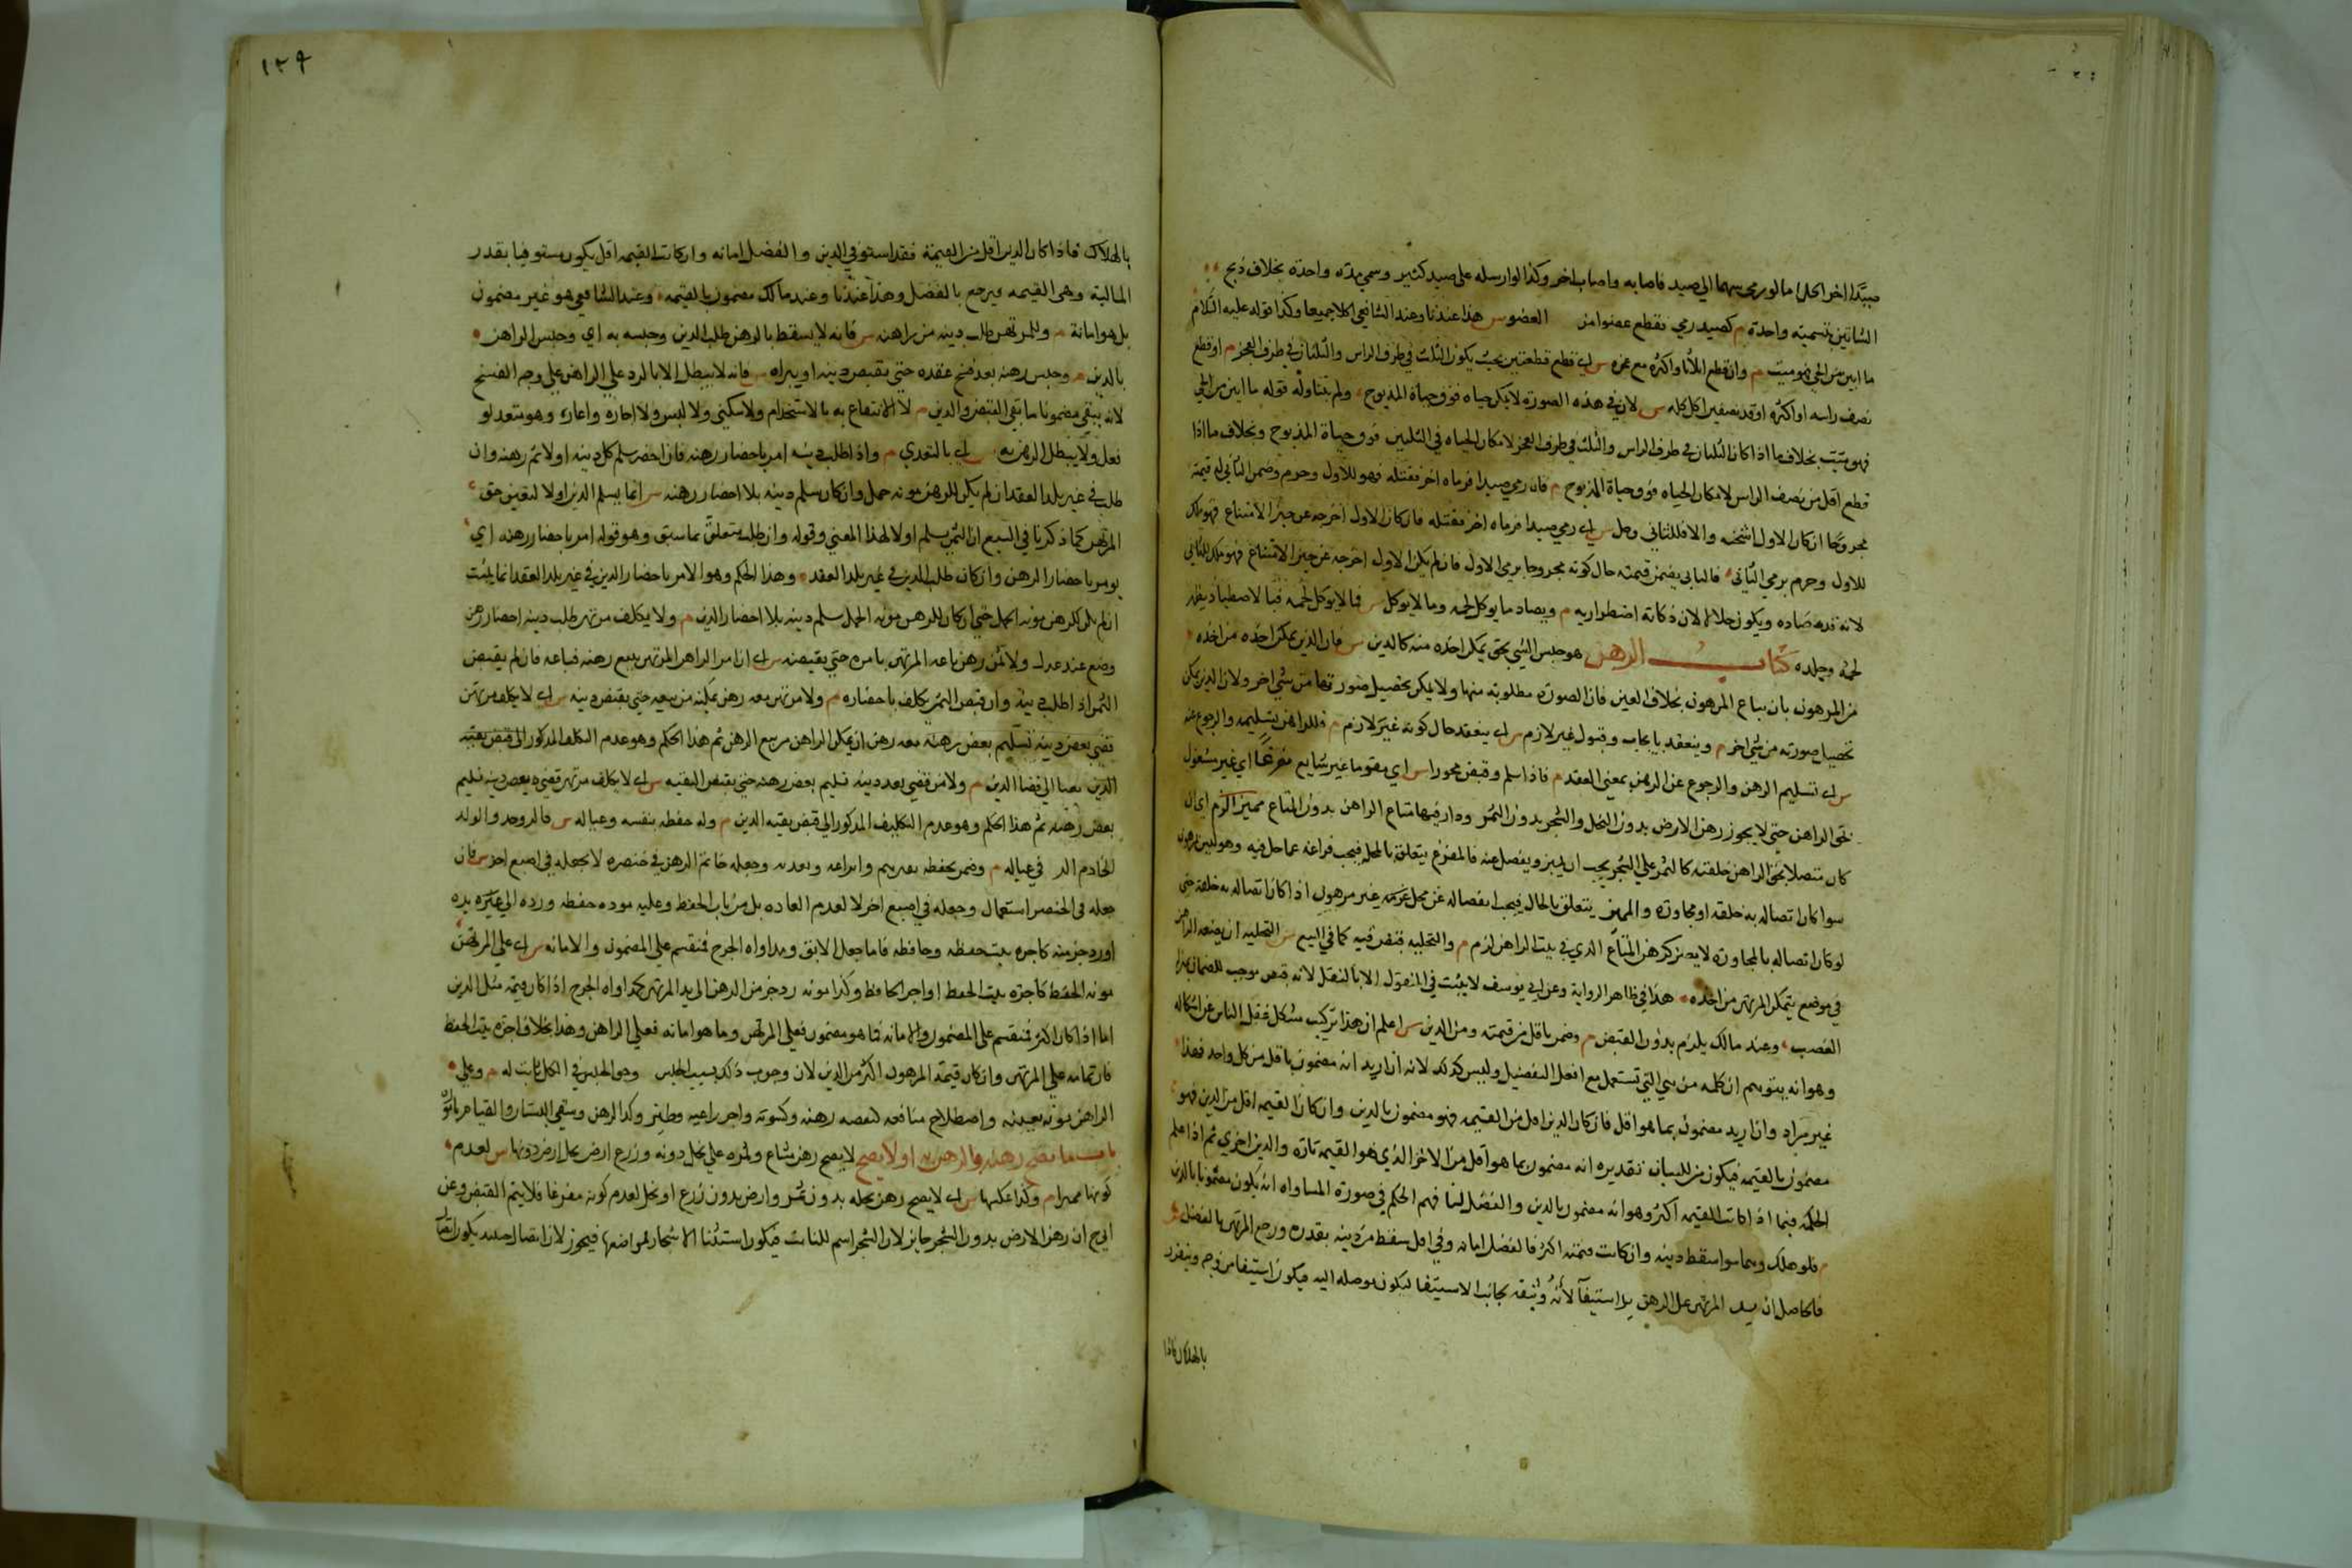 صيدًا اخر احلا كما لو رمى سهما الى صيد فاصابه واصاب اخر وكذا لو ارسله على صيد كثير وسمى مرة واحدة بخلاف ذبح
الشاتين بتسمية واحدة م كصيد رمي فقطع عضو امنه العضو س هذا عندنا وعند الشافعي اكلا جميعا وكذا قوله عليه السلام
ما ابين من الحي فهو ميت م وان قطع اثلاثا واكثره مع عجزه س اي قطع قطعتين بحيث يكون الثلث في طرف الراس والثلثان في طرف العجز م او قطع
نصف راسه او اكثره او قده نصفين اكل كله س لان في هذه الصورة لا يمكن حياة فوق حياة المذبوح ولم يتناوله قوله ما ابين من الحي
فهو ميت بخلاف ما اذا كان الثلثان في طرف الراس والثلث في طرف العجز لامكان الحياة في الثلثين فوق حياة المذبوح وبخلاف ما اذا
قطع اقل من نصف الراس لامكان الحياة فوق حياة المذبوح م فان رمى صيدا فرماه اخر فقتله فهو للاول وحرم وضمن الثاني له قيمته
مجروحا ان كان الاول اثخنه والا فللثاني وحل س اي رمى صيدا فرماه اخر فقتله فان كان الاول اخرجه عن حيز الامتناع فهو ملك
للاول وحرم برمي الثاني فالثاني يضمن قيمته حال كونه مجروحا برمي الاول فان لم يكن الاول اخرجه عن حيز الامتناع فهو ملك للثاني
لانه قد صاده ويكون حلالا لان ذكاته اضطرارية م ويصاد ما يوكل لحمه وما لا يوكل س فما لا يوكل لحمه فبالاصطياد يطهر
لحمه وجلده كتاب الرهن هو حبس الشي بحق يمكن اخذه منه كالدين س فان الدين يمكن اخذه من اخذه
من المرهون بان يباع المرهون بخلاف العين فان الصورة مطلوبة منها ولا يمكن تحصيل صورتها من شي اخر ولان الدين يمكن
تحصيل صورته من شي اخر م وينعقد بايجاب وقبول غير لازم س اي ينعقد حال كونه غير لازم م فللراهن تسليمه والرجوع عنه
س اي تسليم الرهن والرجوع عن الرهن بمعنى العقد م فاذا سلم وقبض محوزا س اي مقوما غير شايع مفرغا اي غير مشغول
بحق الراهن حتى لا يجوز رهن الارض بدون النخل والشجر بدون الثمر ودار فيها متاع الراهن بدون المتاع مميزا لزم اي ان
كان متصلا بحق الراهن خلقة كالثمر على الشجر يجب ان يميز ويفصل عنه فالمفرغ يتعلق بالمحل فيجب فراغه عما حل فيه وهو ليس بمرهون
سوا كان اتصاله به خلقة او مجاورة والمميز يتعلق بالحال فيجب انفصاله عن محل غيره غير مرهون اذا كان اتصاله به خلقة حتى
لو كان اتصاله بالمجاورة لا يضر كرهن المتاع الذي في بيت الراهن لزم م والتخلية قبض فيه كما في البيع س التخلية ان يضعه الراهن
في موضع يتمكن المرتهن من اخذه هذا في ظاهر الرواية وعن ابي يوسف لا يثبت في المنقول الا بالنقل لانه قبض موجب للضمان بمنزلة
الغصب وعند مالك يلزم بدون القبض م وضمن باقل من قيمته ومن الدين س اعلم ان هذا تركيب مشكل غفل الناس عن اشكاله
وهو انه يتوهم ان كلمة من هي التي تستعمل مع افعل التفضيل وليس كذلك لانه ان اريد انه مضمون باقل من كل واحد فهذا
غير مراد وان اريد مضمون بما هو اقل فان كان الدين اقل من القيمه فهو مضمون بالدين وان كان القيمه اقل من الدين فهو
مضمون بالقيمه فيكون من للبيان تقديره انه مضمون بما هو اقل من الاخر الذي هو القيمه تارة والدين اخري ثم اذا علم
الحكم فيما اذا كانت القيمه اكثر وهو انه مضمون بالدين والفضل امانة فهم الحكم في صورة المساواة انه يكون مضمونا بالدين
م فلو هلك وهما سوا سقط دينه وان كانت قيمته اكثر فالفضل امانة وفي اقل سقط من دينه بقدره ورجع المرتهن بالفضل
فالحاصل ان يد المرتهن على الرهن يد استيفآ لانه وثيقة بجانب الاستيفا ليكون موصله اليه فيكون استيفا من وجه ويتقرر
بالهلاك فاذا
١٣٩
بالهلاك فاذا كان الدين اقل من القيمة فقد استوفي الدين والفضل امانة وان كانت القيمه اقل يكون مستوفيا بقدر
المالية وهي القيمه ويرجع بالفضل وهذا عندنا وعند مالك مضمون بالقيمه وعند الشافعي هو غير مضمون
بل هو امانة م وللمرتهن طلب دينه من راهنه س فانه لا يسقط بالرهن طلب الدين وحبسه به اي وحبس الراهن
بالدين م وحبس رهنه بعد فسخ عقده حتى يقبض دينه او يبراه س فانه لا يبطل الا بالرد على الراهن على وجه الفسخ
لانه يبقى مضمونا ما بقي القبض والدين م لا الانتفاع به بالاستخدام ولا سكنى ولا لبس ولا اجارة واعارة وهو متعد لو
فعل ولا يبطل الرهن به س اي بالتعدي م واذا طلب دينه امر باحضار رهنه فان احضر سلم كل دينه اولا ثم رهنه وان
طلب في غير بلد العقد ان لم يكن للرهن مونة حمل وان كان سلم دينه بلا احضار رهنه س انما يسلم الدين اولا لتعين حق
المرتهن كما ذكرنا في البيع ان الثمن يسلم اولا لهذا المعني وقوله وان طلب متعلق بما سبق وهو قوله امر باحضار رهنه اي
يومر باحضار الرهن وان كان طلب الدين في غير بلد العقد وهذا الحكم وهو الامر باحضار الدين في غير بلد العقد انما يثبت
ان لم يكن للرهن مونة الحمل حتى ان كان للرهن مونة الحمل سلم دينه بلا احضار الدين م ولا يكلف مرتهن طلب دينه احضار رهن
وضع عند عدل ولا ثمن رهن باعه المرتهن بامره حتى يقبضه س اي ان امر الراهن المرتهن ببيع رهنه فباعه فان لم يقبض
الثمن اذا طلب دينه وان قبض الثمن يكلف باحضاره م ولا مرتهن معه رهن تمكينه من بيعه حتى يقبض دينه س اي لا يكلف مرتهن
قضي بعض دينه تسليم بعض رهنه معه رهن ان يمكن الراهن من بيع الرهن ثم هذا الحكم وهو عدم التكلف المذكور الى قبض بقية
الدين الى قضا الدين م ولا من قضي بعض دينه تسليم بعض رهنه حتى يقبض البقيه س اي لا يكلف مرتهن قضي بعض دينه تسليم
بعض رهنه ثم هذا الحكم وهو عدم التكليف المذكور الى قبض بقية الدين م وله حفظه بنفسه وعياله س فالزوجة والولد
الخادم في عياله م وضمن بحفظه بغيرهم وايداعه وتعديه وجعله خاتم الرهن في خنصره لا بجعله في اصبع اخر س فان
جعله في الخنصر استعمال وجعله في اصبع اخر لا لعدم العادة بل من باب الحفظ وعليه مونة حفظه ورده الى يده
او رد جزء منه كاجرة بيت حفظه وحافظه فاما جعل الابق ومداواة الجرح فتنقسم على المضمون والامانة س اي على المرتهن
مونة الحفظ كاجرة بيت الحفظ او اجر الحافظ وكذا مونة رد جزء من الرهن الى يد المرتهن كمداواة الجرح اذا كان قيمته مثل الدين
اما اذا كان اكثر فتنقسم على المضمون والامانة فما هو مضمون فعلى المرتهن وما هو امانة فعلى الراهن وهذا بخلاف اجرة بيت الحفظ
فان تمامه على المرتهن وان كان قيمة المرهون اكثر من الدين لان وجوب ذلك بسبب الحبس وحق الحبس في الكل ثابت له م وعلى
الراهن مونة تبقيته واصطلاح منافعه كنفقة رهنه وكسوته واجر راعيه وظئر ولد الرهن وسقي البستان والقيام باموره
باب ما يصح رهنه والرهن به او لا يصح لا يصح رهن مشاع وثمره على نخل دونه وزرع ارض ونخل ارض دونها س لعدم
كونها مميزا م وكذا عكسها س اي لا يصح رهن نخله بدون ثمر وارض بدون زرع او نخل لعدم كونه مفرغا فلا يتم القبض وعن
ابي ح ان رهن الارض بدون الشجر جائز لان الشجر اسم للنابت فيكون استثنا الاشجار بمواضعها فيجوز لان اتصال حينئذ يكون اتصال